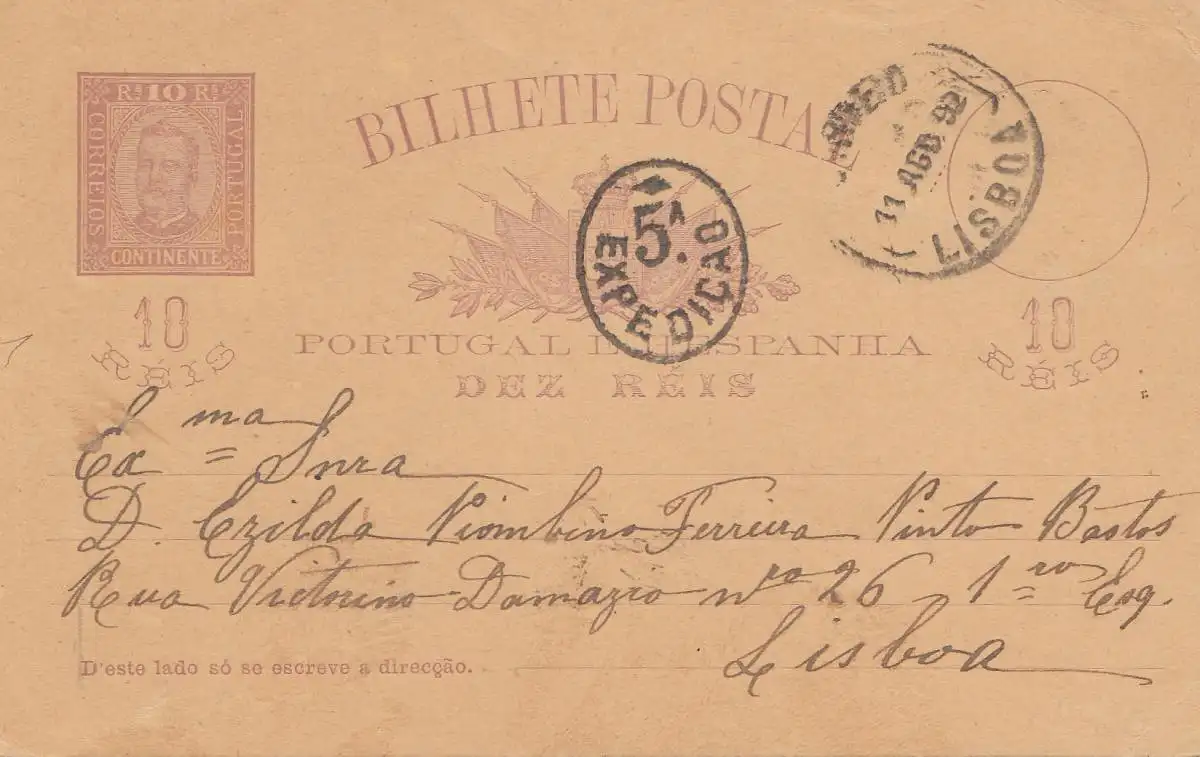 Rs 10 Rs
CORREIOS
PORTUGAL
CONTINENTE
BILHETE POSTAL
11 AGO 92
LISBOA
5.ª
EXPEDIÇÃO
10
RÉIS
10
RÉIS
PORTUGAL E HESPANHA
DEZ RÉIS
Exma Snra
D. Ezilda Piombino Ferreira Pinto Bastos
Rua Victorino Damazio nº 26 1ro Esq.
Lisboa
D'este lado só se escreve a direcção.